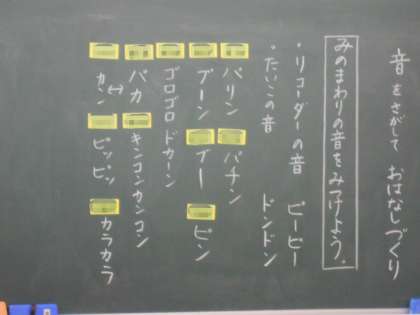 音をさがして おはなしづくり
みのまわりの音をみつけよう。
・リコーダーの音 ピーピー
・たいこの音 ドンドン
バリン パチン
ブーン ブー ピン
ゴロゴロドカーン
パカ キンコンカンコン
↔
カン ピッピッ カラカラ